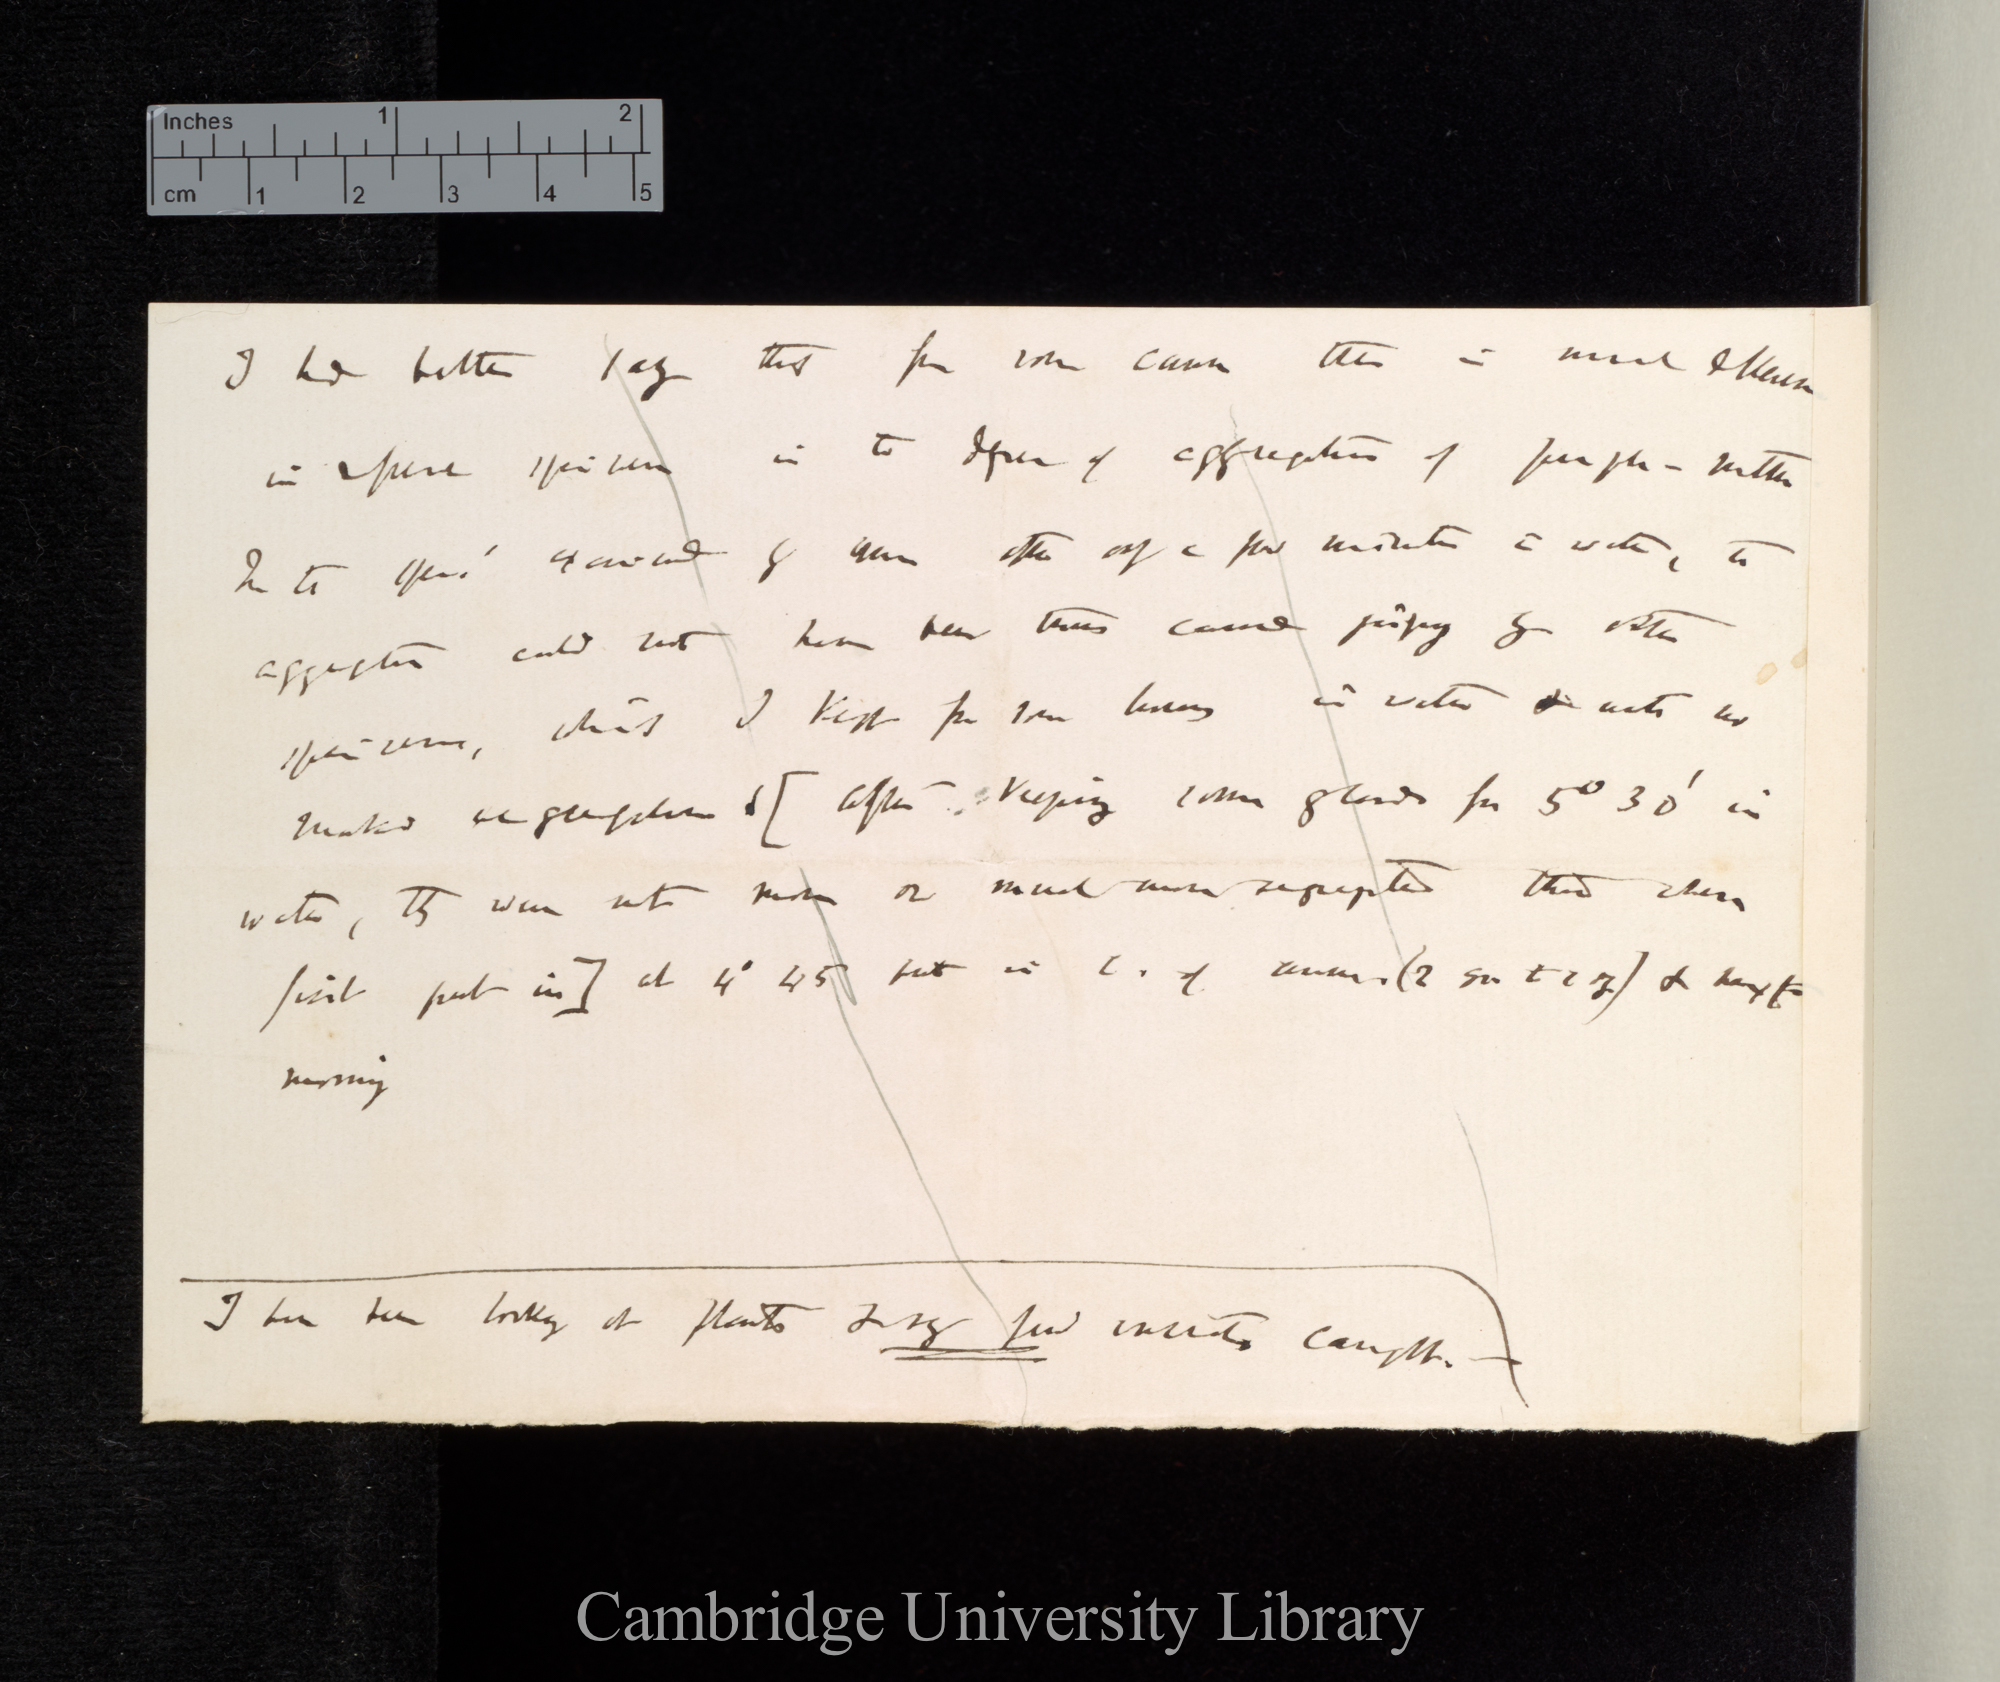 Inches 1 2
cm 1 2 3 4 5
I had better say that for some cause there is much difference
in specimen in the degree of aggregation of purple - matter
In the examined by after only a few minutes in water, the
aggregation could not have been thus caused by other
specimens, which I kept for some hours in water & with no
marked [ After keeping some glands for 5° 30' in
water, they were not more or much more segregated than when
first put in] at 4° 45 put in C. of (2 gr to 1 oz) & next
morning
I have been looking at plants & very few insects caught. —
Cambridge University Library